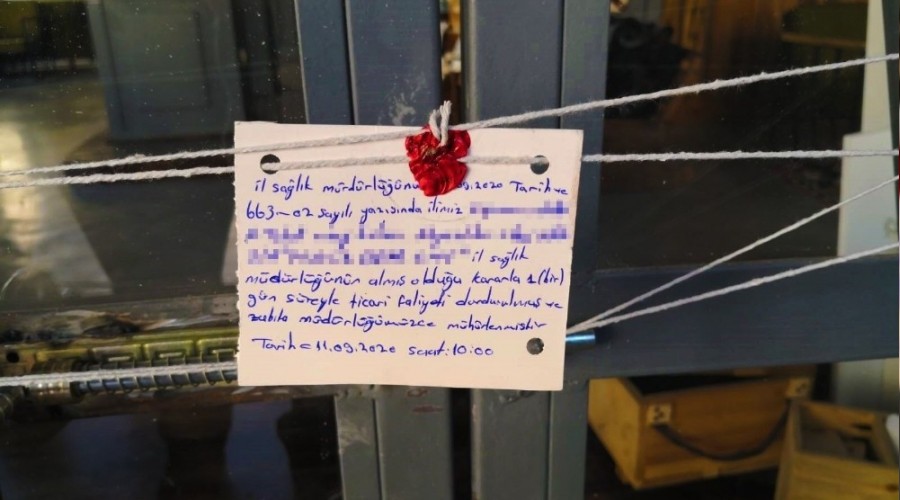 il sağlık mürdürlüğünü .2020 Tarih ve
663-02 sayılı yazısında ilimiz
il sağlık
müdürlüğünün almış olduğu kararla 1(bir)
gün süreyle ticari faliyeti durdurulmuş ve
zabıta müdürlüğümüzce mühürlenmiştir
Tarih = 11.09.2020 saat:10:00